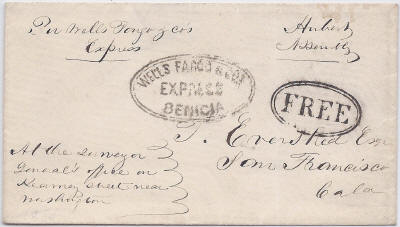 Per Wells Fargo & Co's
Express
Hubert
WELLS FARGO & CO'S
EXPRESS
BENICIA
FREE
T. Evershed Esq
San Francisco
Cala
At the Surveyor
General's office on
Kearney Street near
Washington